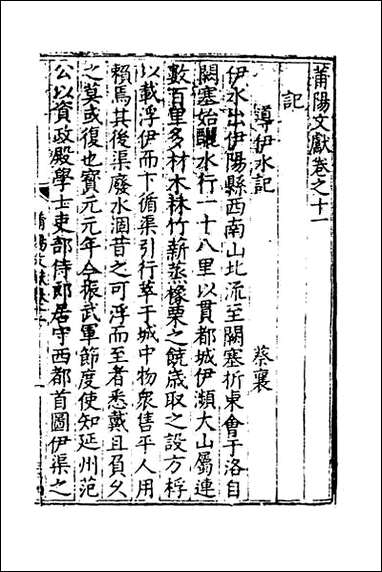 莆陽文獻卷之十一
記
導伊水記 蔡襄
伊水出伊陽縣西南山北流至闕塞折東會于洛自
闕塞始釃水行二十八里以貫都城伊瀕大山屬連
數百里多材木林竹薪蒸橡栗之饒歳取之設方桴
以載浮伊而下循渠引行萃于城中物衆售平人用
賴焉其後渠廢水涸昔之可浮而至者悉戴且負久
之莫或復也寳元元年今振武軍節度使知延州范
公以資政殿學士吏部侍郎居守西都首圖伊渠之